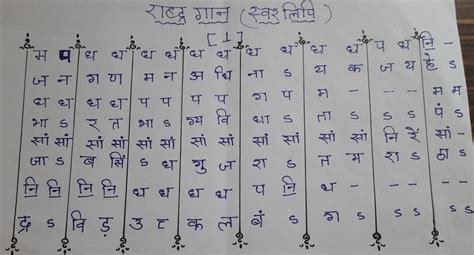 राष्ट्र गान (स्वर लिपि)
[1]
म प ध ध ध ध ध ध ध ध ध ध प ध नि -
ज न ग ण म न अ धि ना ऽ य क ज य हे ऽ
ध ध ध ध प प प प ग प म - - - म म
भा ऽ र त भा ऽ ग्य वि धा ऽ ता ऽ ऽ ऽ पं ऽ
सां सां सां सां सां सां सां सां सां सां सां सां नि रें सां -
जा ऽ ब सिं ऽ ध गु ज रा ऽ त म रा ऽ ठा ऽ
नि नि नि नि ध ध ध ध प नि ध - - - - -
द्र ऽ वि ड़ उ त् क ल बं ऽ ग ऽ ऽ ऽ ऽ ऽ